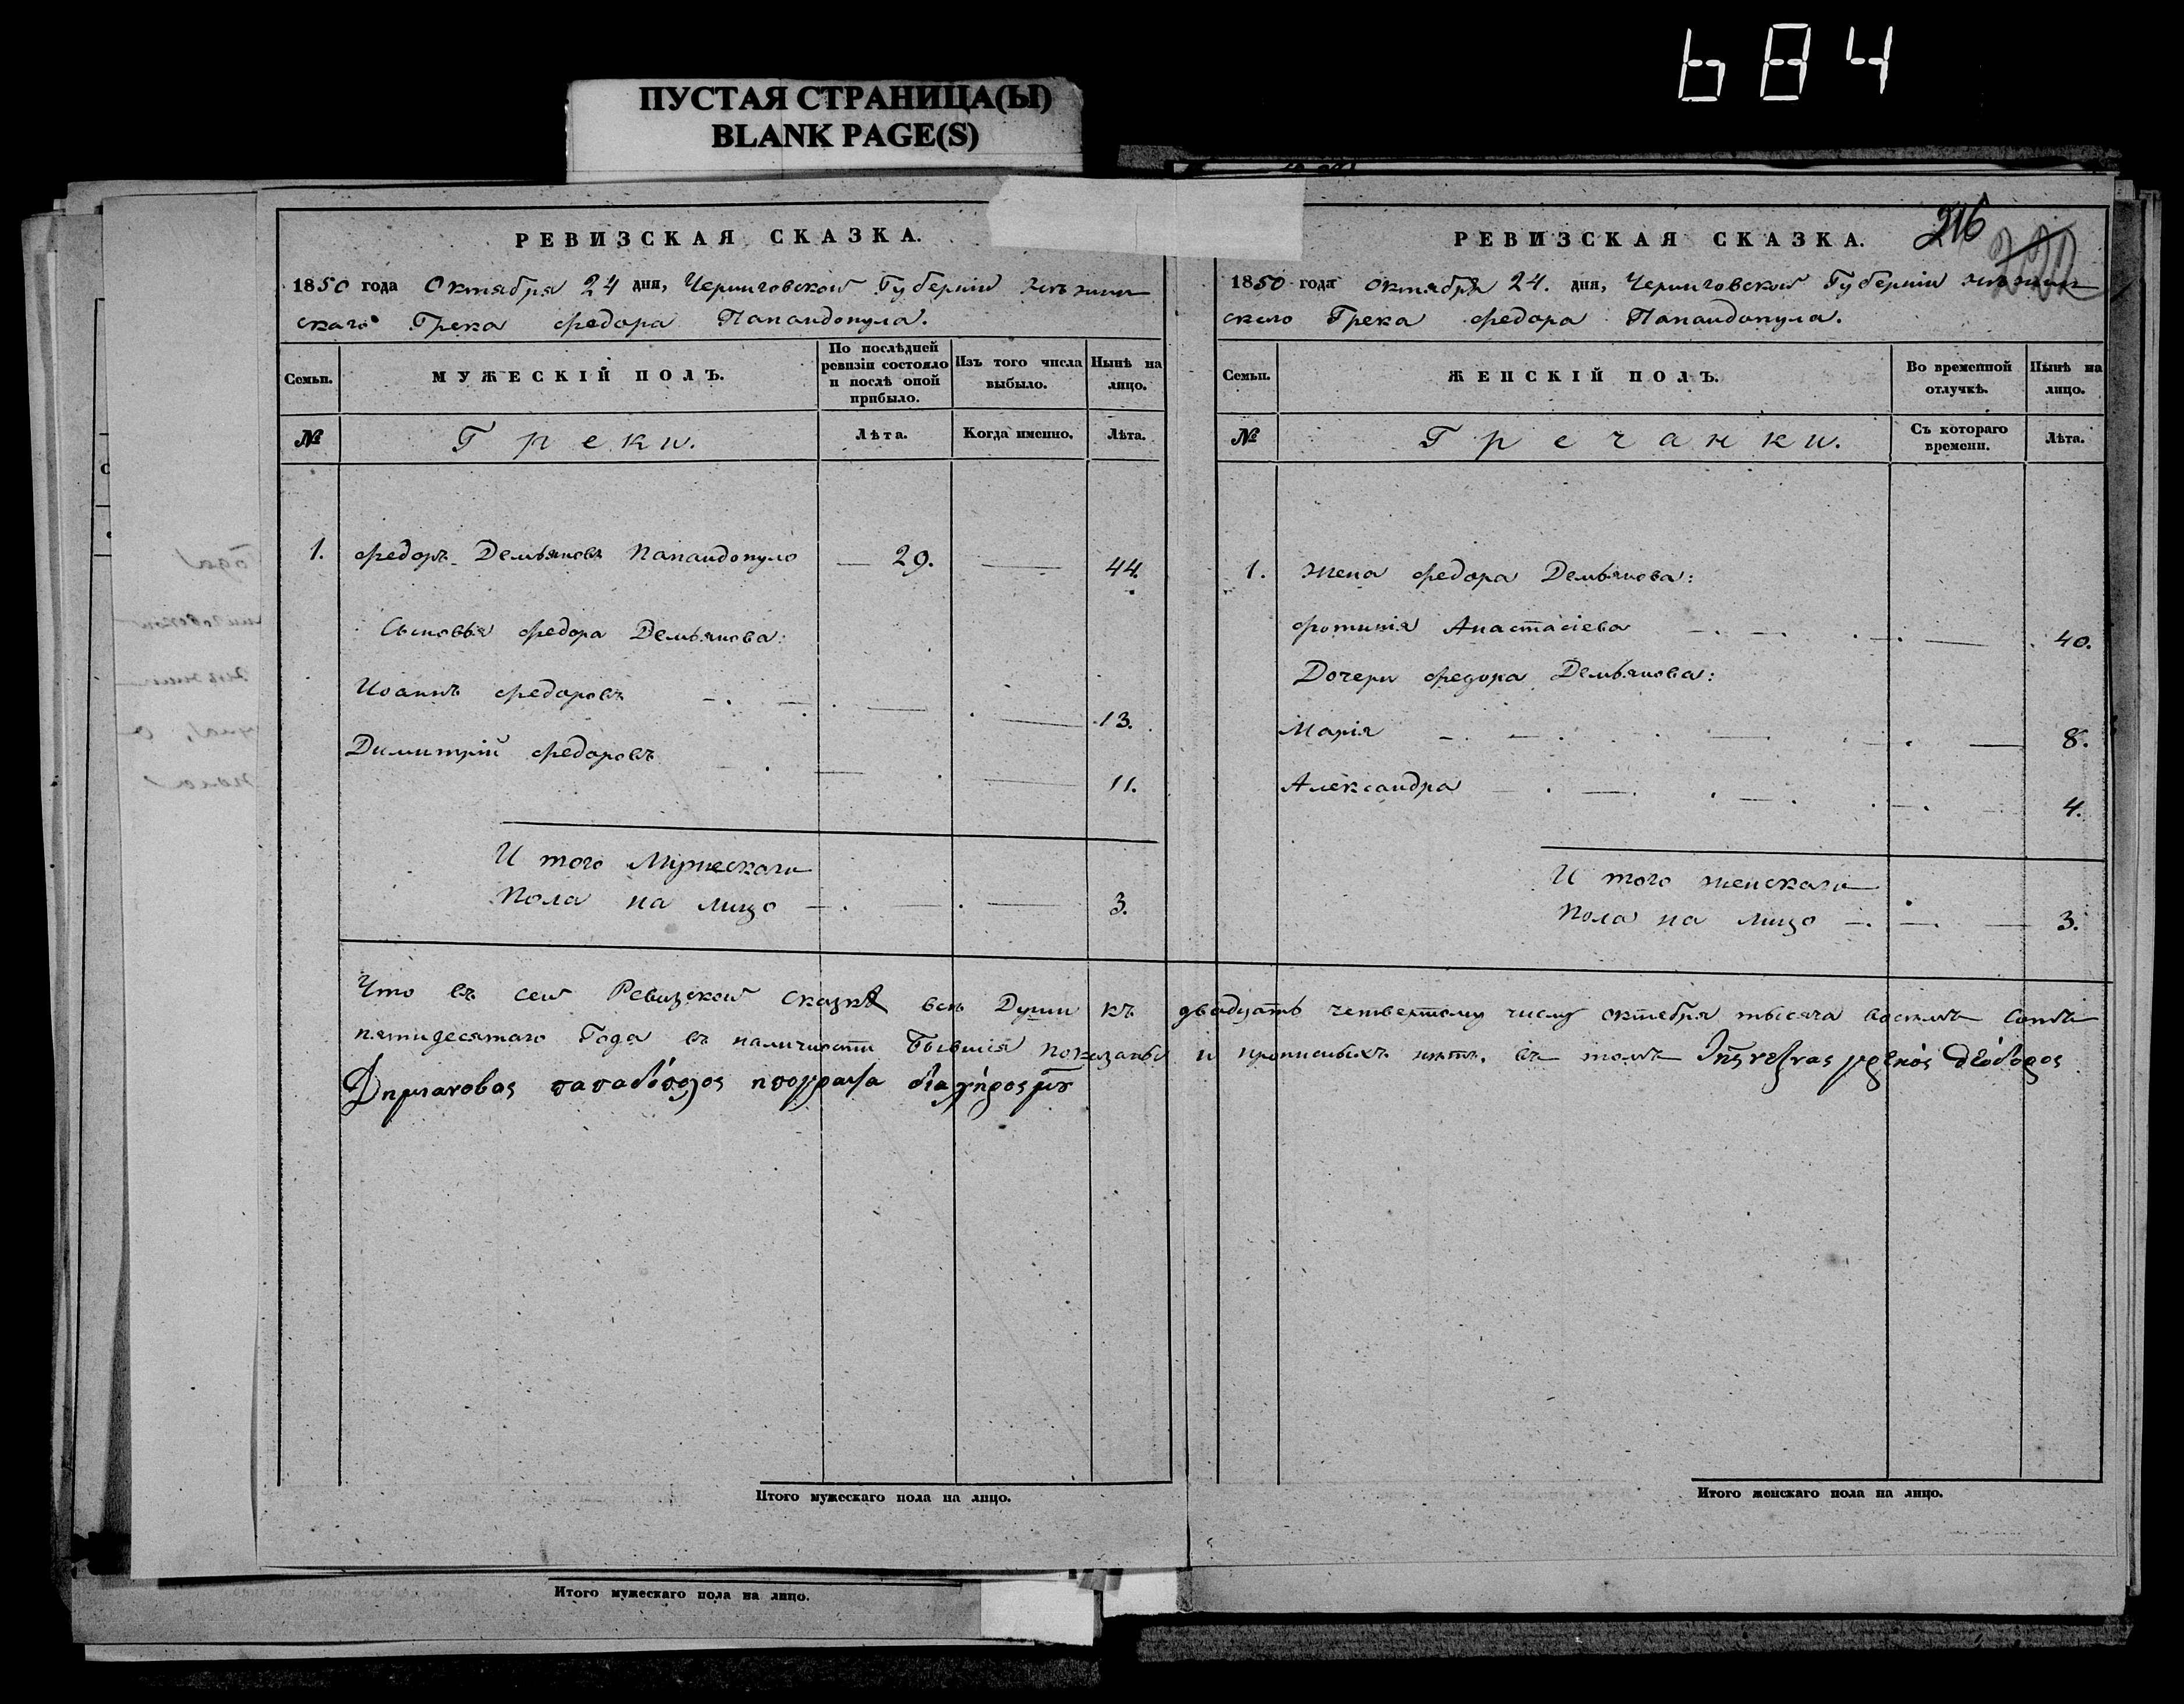 684
ПУСТАЯ СТРАНИЦА(Ы)
BLANK PAGE(S)
РЕВИЗСКАЯ СКАЗКА.
1850 года Октября 24 дня, Черниговской Губерніи нѣжин
скаго Грека Федора Папандопула.
Семьи.
МУЖЕСКІЙ ПОЛЪ.
По послѣдней ревизіи состояло и послѣ оной прибыло.
Изъ того числа выбыло.
Нынѣ на лицо.
№
Греки.
Лѣта.
Когда именно.
Лѣта.
1. Федоръ Демьяновъ Папандопуло — 29. — 44.
Сыновья Федора Демьянова:
Иоаннъ Федоровъ 13.
Димитрій Федоровъ 11.
И того Мужескаго
Пола на лицо 3.
216
РЕВИЗСКАЯ СКАЗКА.
1850 года октября 24. дня, Черниговской Губерніи нѣжин
скаго Грека Федора Папандопула.
Семьи.
ЖЕНСКІЙ ПОЛЪ.
Во временной отлучкѣ.
Нынѣ на лицо.
№
Гречанки.
Съ котораго времени.
Лѣта.
1. Жена Федора Демьянова:
Фотинія Анастасіева 40.
Дочери Федора Демьянова:
Марія 8.
Александра 4.
И того женскаго
Пола на лицо 3.
Что въ сей Ревизской сказкѣ всѣ Души къ двадцать четвертому числу октября тысяча восемь сотъ
пятидесятаго Года въ наличности бывшія показаны и прописныхъ нѣтъ, въ томъ
παπαδόπολος
Итого мужескаго пола на лицо.
Итого женскаго пола на лицо.
Итого мужескаго пола на лицо.